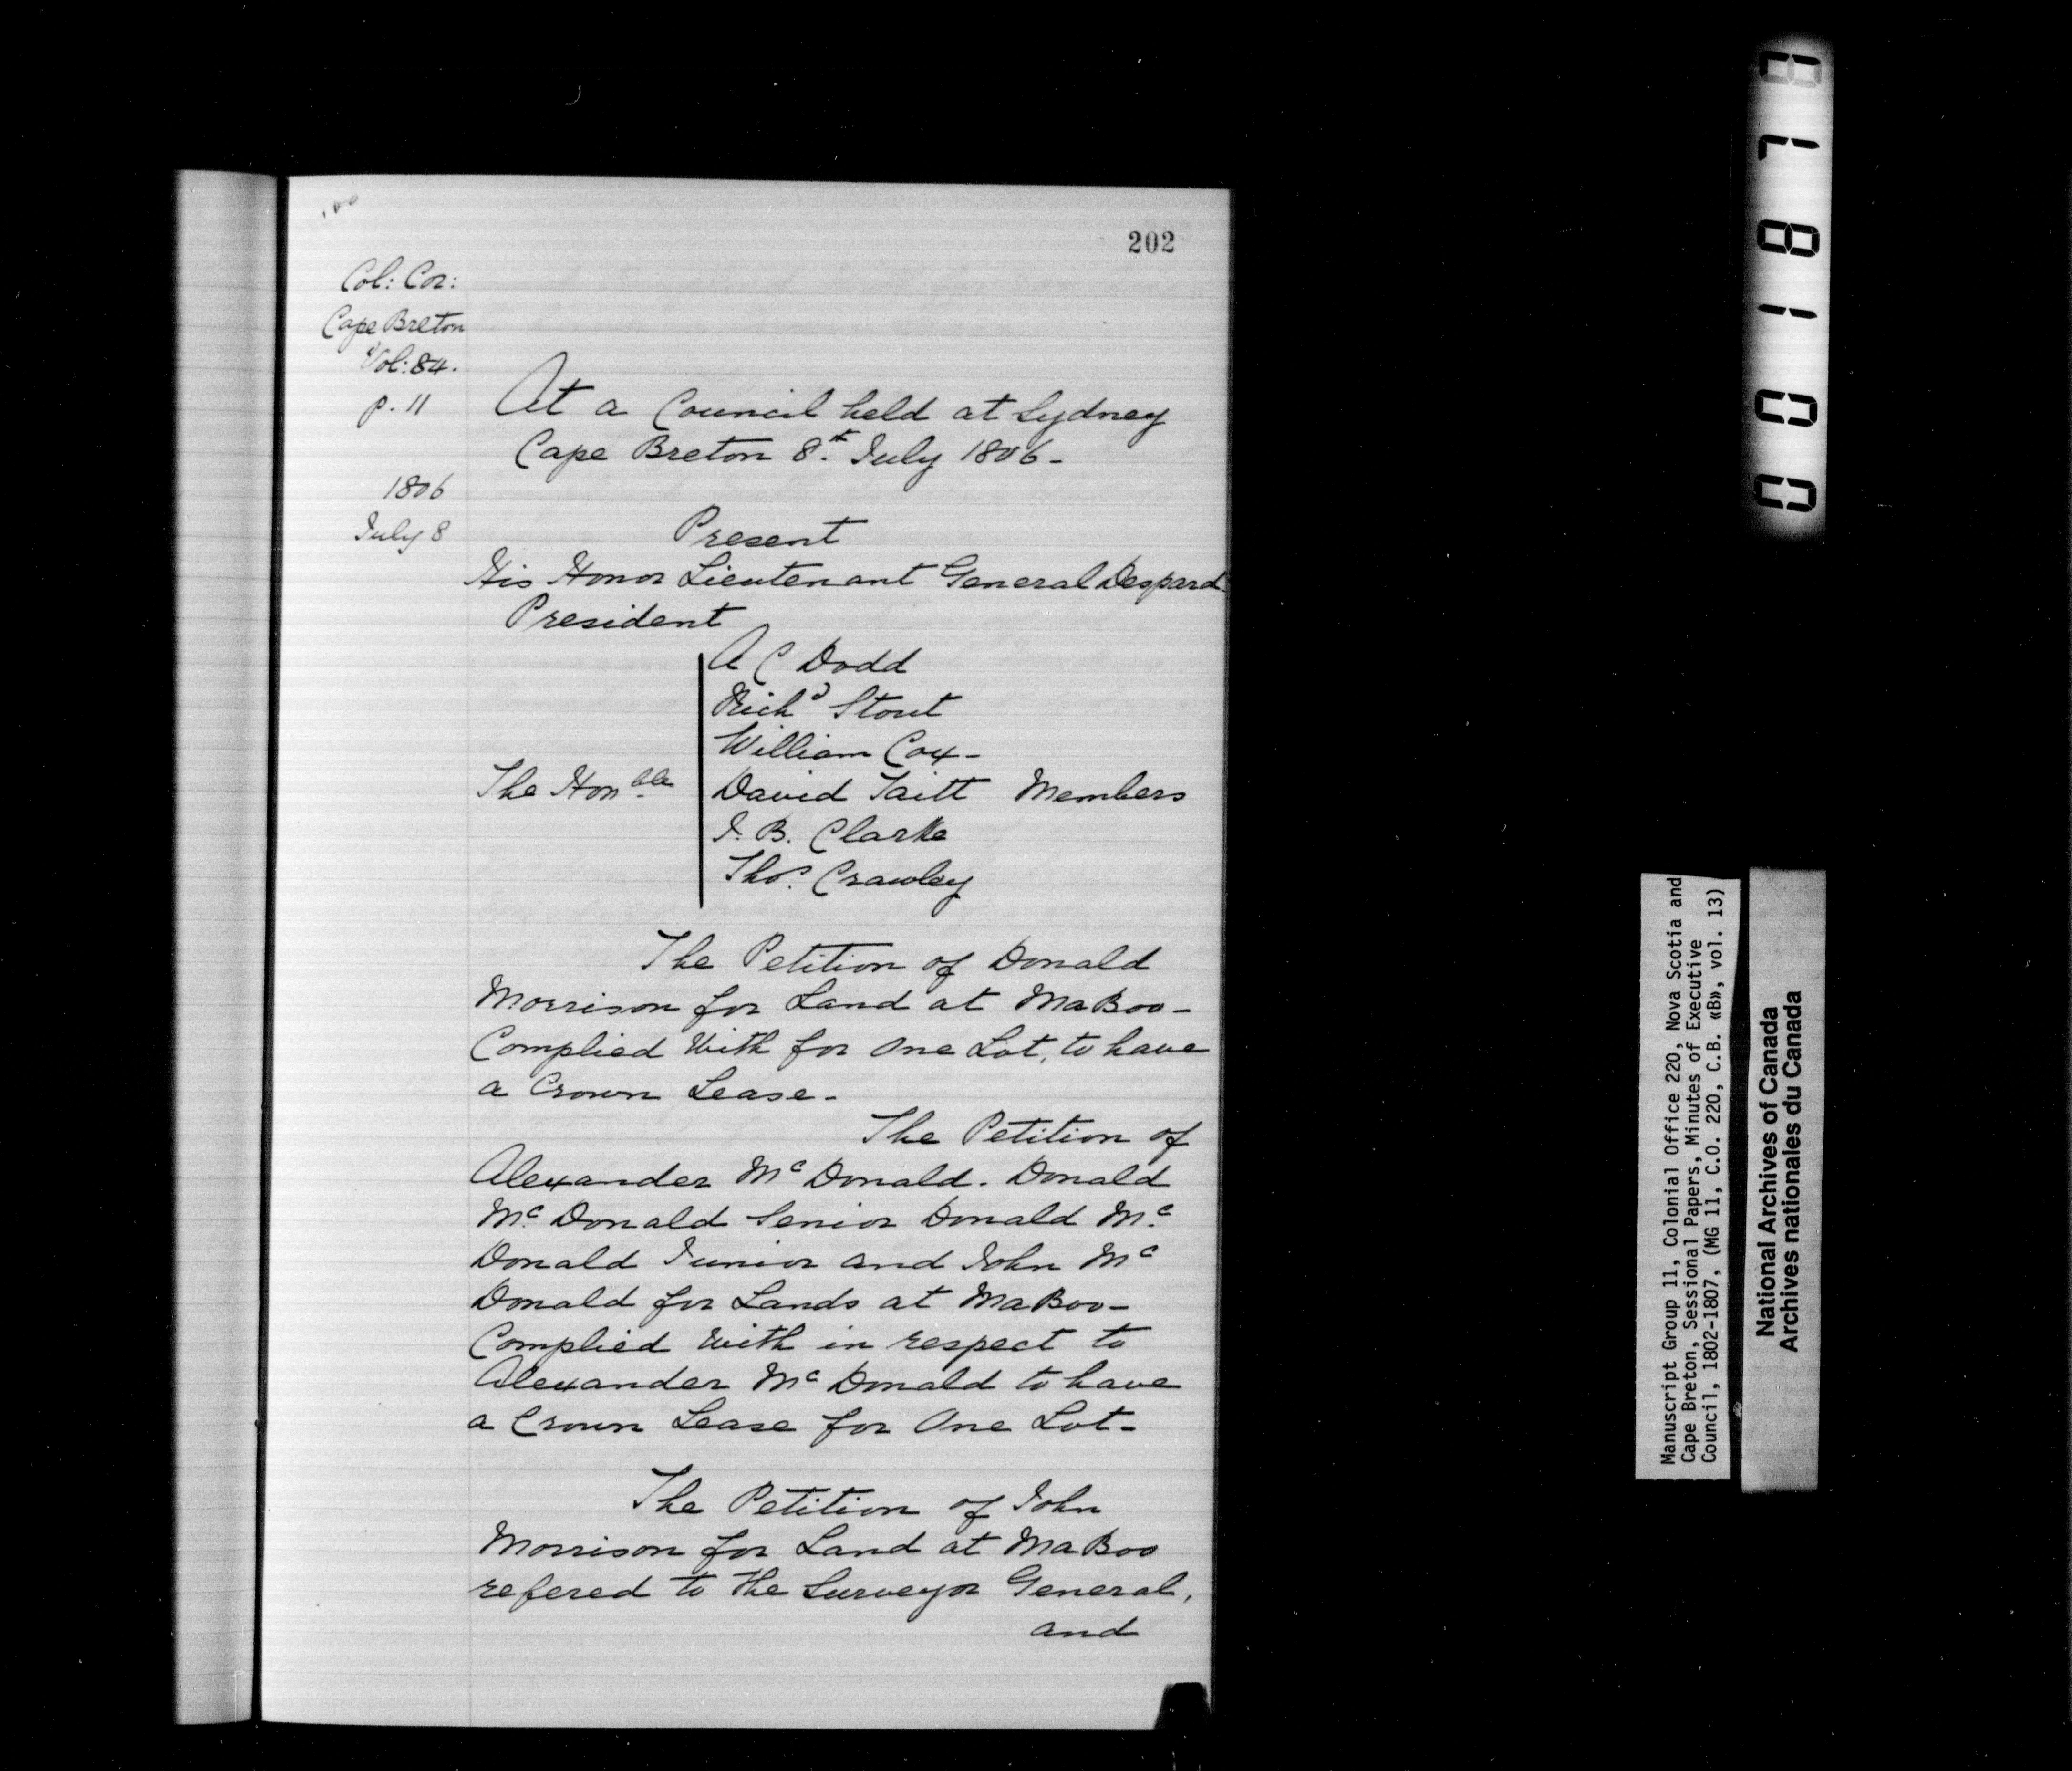 202
Col: Cor:
Cape Breton
Vol: 84.
p. 11
1806
July 8
At a Council held at Sydney
Cape Breton 8th July 1806-
Present
His Honor Lieutenant General Despard
President
A C Dodd
Richd Stout
William Cox-
The Honble David Taitt Members
I. B. Clarke
Thos. Crawley
The Petition of Donald
Morrison for Land at MaBoo-
Complied With for One Lot, to have
a Crown Lease-
The Petition of
Alexander Mc Donald. Donald
Mc. Donald Senior Donald Mc.
Donald Junior and John Mc
Donald for Lands at MaBoo-
Complied With in respect to
Alexander Mc Donald to have
a Crown Lease for One Lot-
The Petition of John
Morrison for Land at MaBoo
refered to the Surveyor General,
and
001878
Manuscript Group 11, Colonial Office 220, Nova Scotia and
Cape Breton, Sessional Papers, Minutes of Executive
Council, 1802-1807, (MG 11, C.O. 220, C.B. «B», vol. 13)
National Archives of Canada
Archives nationales du Canada